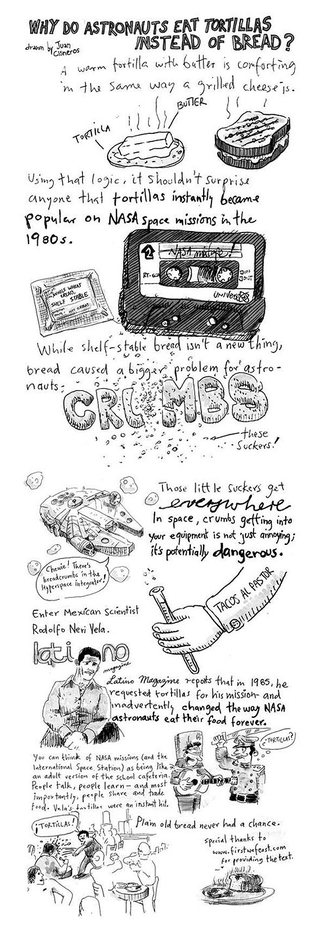 WHY DO ASTRONAUTS EAT TORTILLAS
INSTEAD OF BREAD?
drawn by Juan
Cisneros
A warm tortilla with butter is comforting
in the same way a grilled cheese is.
BUTTER
TORTILLA
Using that logic, it shouldn't surprise
anyone that tortillas instantly became
popular on NASA space missions in the
1980s.
NASA mixtape!
SHELF STABLE
While shelf-stable bread isn't a new thing,
bread caused a bigger problem for astro-
nauts.
CRUMBS
these
suckers!
Those little suckers get
everywhere
In space, crumbs getting into
your equipment is not just annoying;
it's potentially dangerous.
Chewie! There's
breadcrumbs in the
hyperspace integrator!
TACOS AL PASTOR
Enter Mexican Scientist
Rodolfo Neri Vela.
latino
magazine
Latino Magazine reports that in 1985, he
requested tortillas for his mission and
inadvertently changed the way NASA
astronauts eat their food forever.
You can think of NASA missions (and the
International Space Station) as being like
an adult version of the school cafeteria.
People talk, people learn - and most
importantly, people share and trade
food. Vela's tortillas were an instant hit.
¿TORTILLAS?
¡TORTILLAS!
Plain old bread never had a chance.
special thanks to
www.firstwefeast.com
for providing the text.